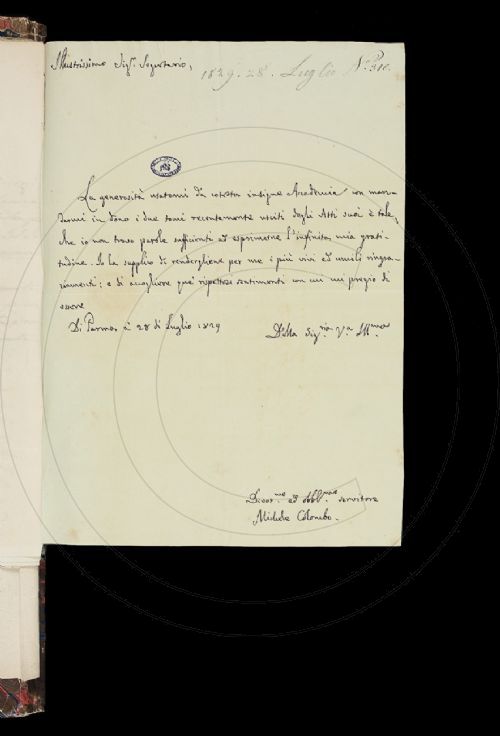 Illustrissimo Sig.r Segretario,
1829. 28. Luglio N.o 310.
La generosità usatami da cotesta insigne Accademia con man-
darmi in dono i due tomi recentemente usciti degli Atti suoi è tale,
che io non trovo parole sufficienti ad esprimerne l'infinita mia grati-
tudine. Io la supplico di renderglene per me i più vivi ed umili ringra-
ziamenti; e di accogliere que' rispettosi sentimenti con cui mi pregio di
essere
Di Parma, a' 28 di Luglio 1829
Della Sig.ria V.a Ill.ma
Devot.mo ed Obbl.mo servitore
Michele Colombo.